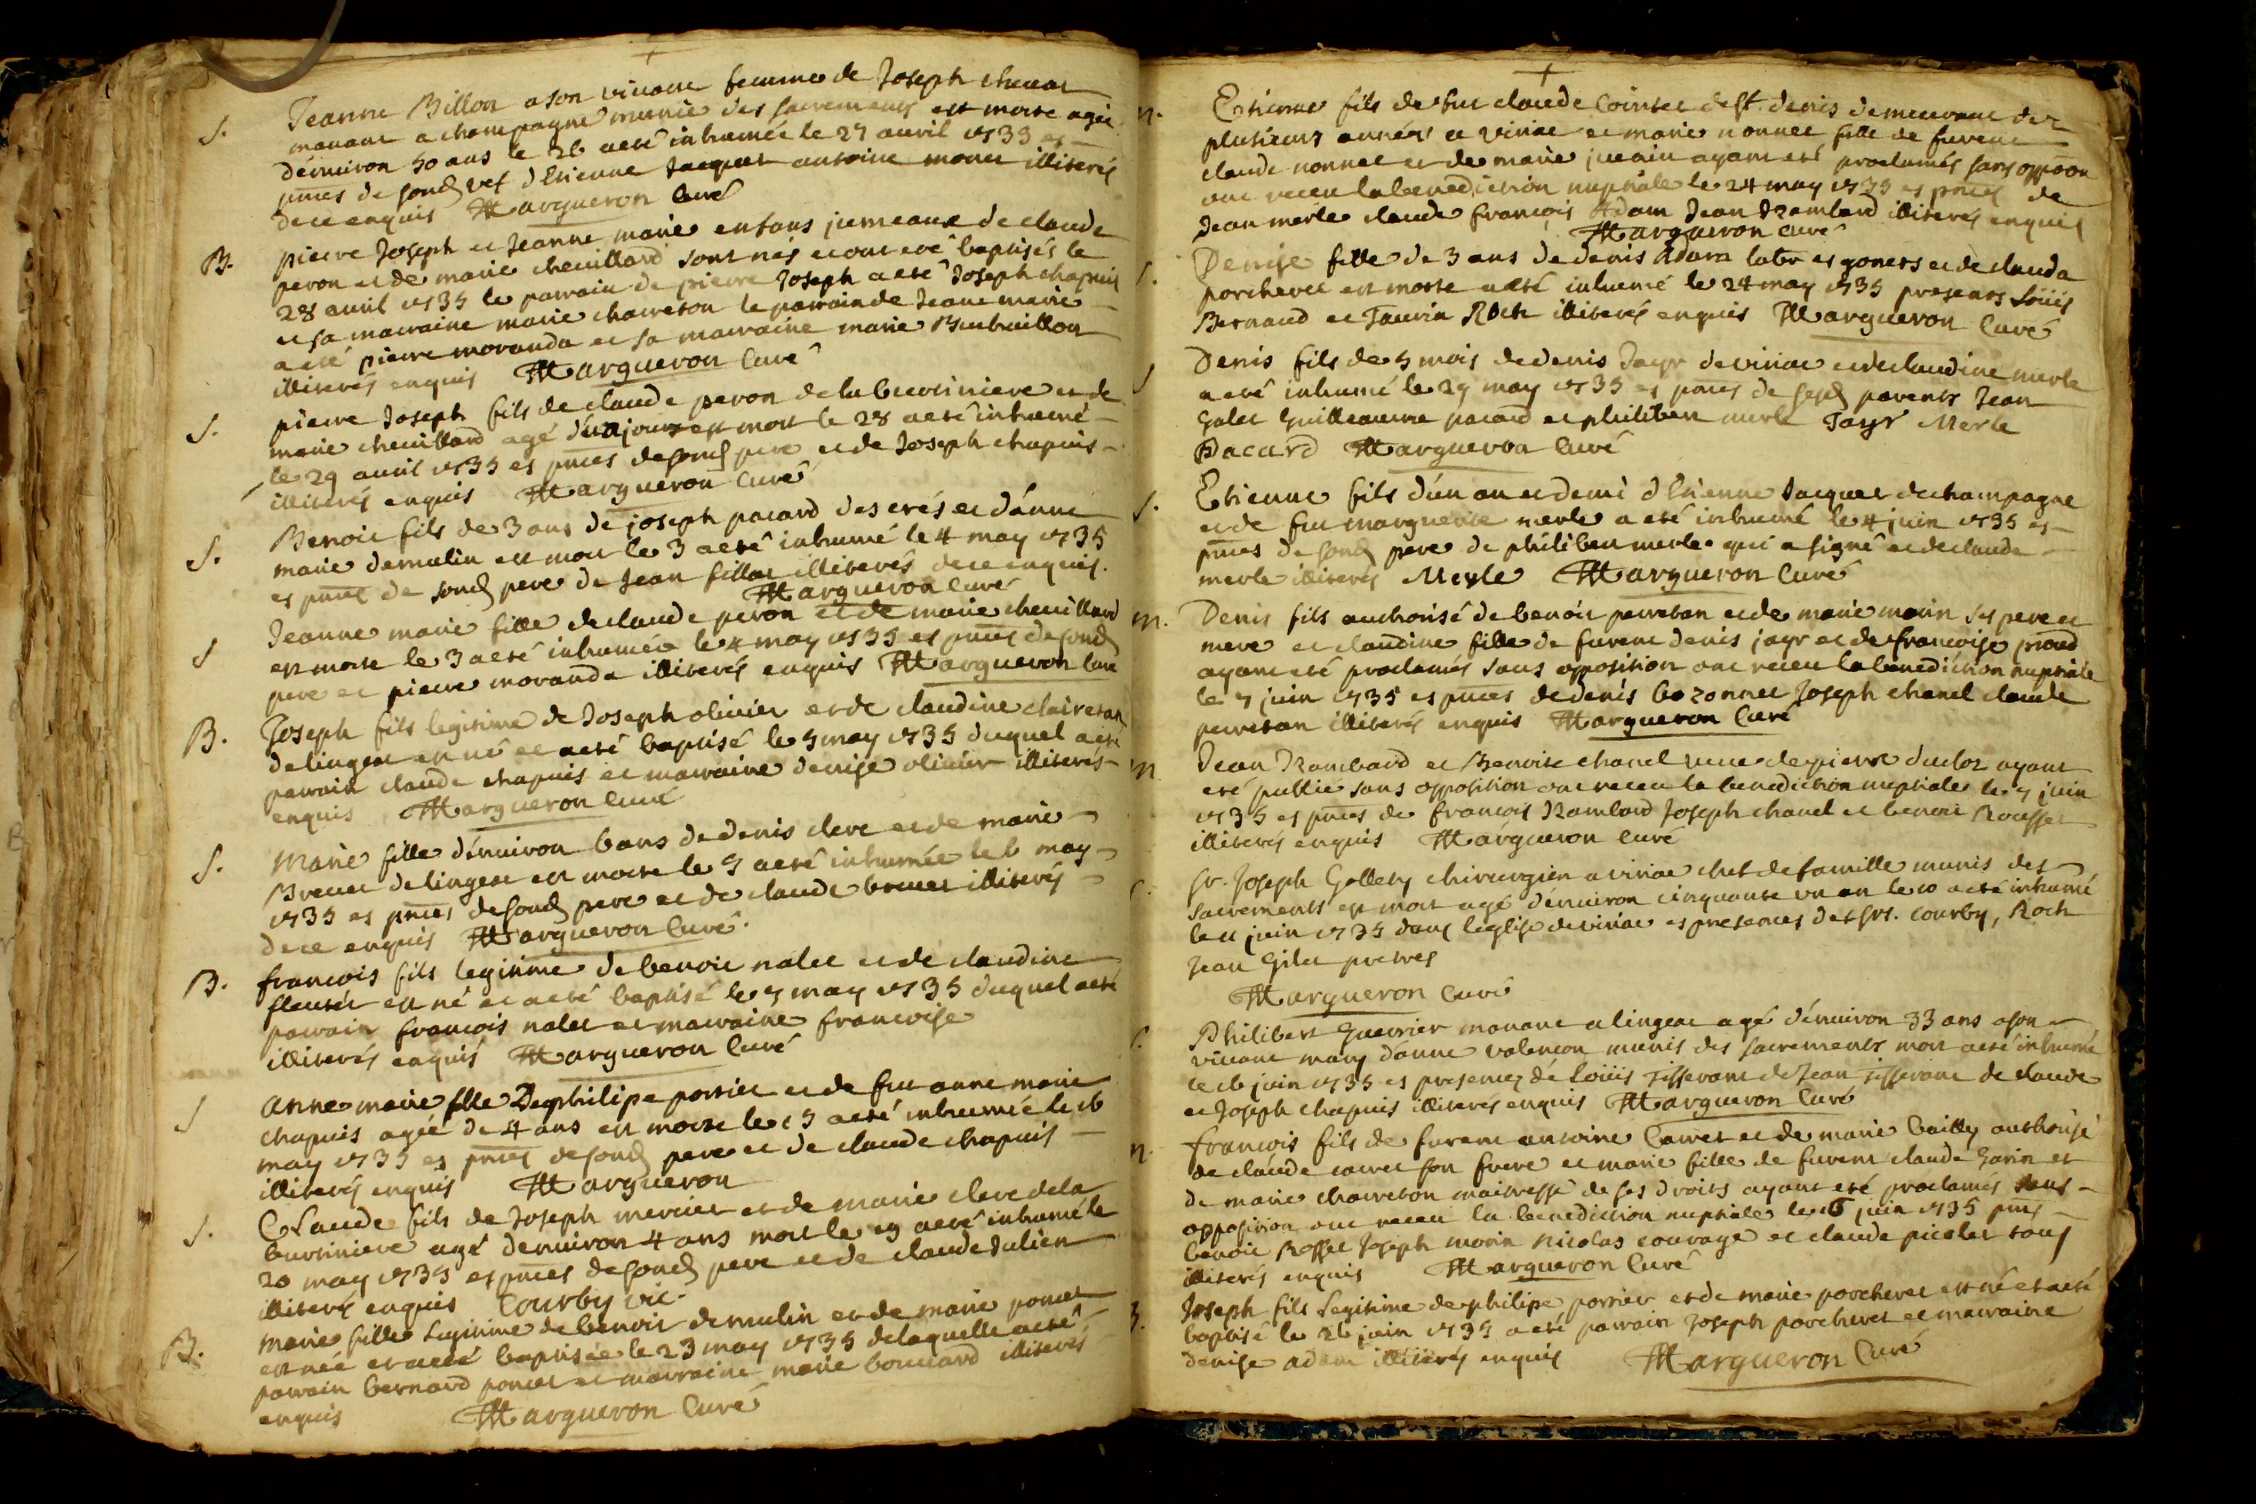 S. Jeanne Billon a son vivant femme de Joseph
manant a champagne munie des sacrements est morte agée
dénuiron 50 ans le 26 a eté inhumée le 27 auril 1735 es
pnces de sond vef d'Etienne Jacquet antoine illiterés
de ce enquis Margueron Curé
B. pierre Joseph et Jeanne marie enfans jumeaux de claude
peron et de marie cheuillard sont nés et ont eté baptisés le
28 auril 1735 le parrain de pierre Joseph a eté Joseph chapuis
et sa marraine marie charreton le parrain de Jeane marie
a eté pierre moranda et sa marraine marie
illiterés enquis Margueron Curé
S. pierre Joseph fils de claude peron de la et de
marie cheuillard agé d'un jour est mort le 28 a eté inhumé
le 29 auril 1735 es pnces de sond pere et de Joseph chapuis
illiterés enquis Margueron Curé
S. Benoit fils de 3 ans de joseph pacard des et d'anne
marie demulin est mort le 3 a eté inhumé le 4 may 1735
es pnces de sond pere de Jean fillat illiterés de ce enquis.
Margueron Curé
S Jeanne marie fille de claude peron et de marie cheuillard
est morte le 3 a eté inhumée le 4 may 1735 es pnces de sond
pere et pierre moranda illiterés enquis Margueron Curé
B. Joseph fils legitime de Joseph oliuier et de claudine claireton
de lingeat est né et a eté baptisé le 5 may 1735 duquel a eté
parrain claude chapuis et marraine denise oliuier illiterés
enquis Margueron Curé
S. Marie fille dénuiron 6 ans de denis clere et de marie
Breuet de lingeat est morte le 5 a eté inhumée le 6 may
1735 es pnces de sond pere et de claude breuet illiterés
de ce enquis Margueron Curé.
B. francois fils legitime de benoit nalet et de claudine
fleutet est né et a eté baptisé le 7 may 1735 duquel a eté
parrain francois nalet et marraine francoise
illiterés enquis Margueron Curé
S Anne marie fille De philipe perrier et de feu anne marie
chapuis agée de 4 ans est morte le 15 a eté inhumée le 16
may 1735 es pnces de sond pere et de claude chapuis
illiterés enquis Margueron
S. Claude fils de Joseph mercier et de marie clere de la
agé denuiron 4 ans mort le 19 a eté inhumé le
20 may 1735 es pnces de sond pere et de claude Julien
illiterés enquis Courby vic.
B. Marie fille legitime de benoit demulin et de marie poncet
est née et a eté baptisée le 23 may 1735 de laquelle a eté
parrain bernard poncet et marraine marie bouuard illiterés
enquis Margueron Curé
m. Estienne fils de feu claude Cointet de st. denis demeurant dez
plusieurs années a viriac et marie nonnet fille de furent
claude nonnet et de marie ayant eté proclamés sans oppoon
ont receu la benediction nuptiale le 24 may 1735 es pnces de
Jean merle claude francois Adam Jean Rambard illiterés enquis
Margueron Curé
S. Denise fille de 3 ans de denis Adam labr es gonets et de clauda
porcheret est morte a eté inhumé le 24 may 1735 presents Loüis
Bernard et Taurin Roch illiterés enquis Margueron Curé
S Denis fils de 5 mois de denis Jayr de viriac et de claudine merle
a eté inhumé le 29 may 1735 es pnces de sesd parents Jean
Galet Guilleaume pacard et philibert merle Jayr Merle
Pacard Margueron Curé
S. Etienne fils d'un an et demi d'Etienne Jacquet de champagne
et de feu marguerite merle a eté inhumé le 4 juin 1735 es
pnces de sond pere de philibert merle qui a signé et de claude
merle illiterés Merle Margueron Curé
m. Denis fils authorisé de benoit perretan et de marie morin ses pere et
mere et claudine fille de furent denis jayr et de francoise
ayant eté proclamés sans opposition ont receu la benediction nuptiale
le 7 juin 1735 es pnces de denis bozonnet Joseph chanel claude
perretan illiterés enquis Margueron Curé
m Jean Rambard et Benoite chanel veuue de pierre duclos ayant
eté publié sans opposition ont receu la benediction nuptiale le 7 juin
1735 es pnces de francois Rambard Joseph chanel et benoit Rousset
illiterés enquis Margueron Curé
S. Sr. Joseph Gollety chirurgien a viriac chef de famille munis des
sacrements est mort agé dénuiron cinquante un an le 10 a eté inhumé
le 11 juin 1735 dans l'eglise de viriac es presences des srs. Courby, Roch
Jean Gilet pretres
Margueron Curé
S. Philibert Guerrier manant a lingeat agé dénuiron 33 ans a son
viuant mary d'anne valencon munis des sacrements mort a eté inhumé
le 16 juin 1735 es presences de Loüis Tisserant de Jean Tisserant de claude
et Joseph chapuis illiterés enquis Margueron Curé
m. francois fils de furent antoine Carret et de marie bailly authorisé
de claude carret son frere et marie fille de furent claude Garin et
de marie charreton maitresse de ses droits ayant eté proclamés sans
opposition ont receu la benediction nuptiale le 16 juin 1735 pnts
benoit Roffet Joseph morin Nicolas couurage et claude picolet tous
illiterés enquis Margueron Curé
B. Joseph fils Legitime de philipe perrier et de marie porcheret est né et a eté
baptisé le 26 juin 1735 a eté parrain Joseph porcheret et marraine
denise adam illiterés enquis Margueron Curé